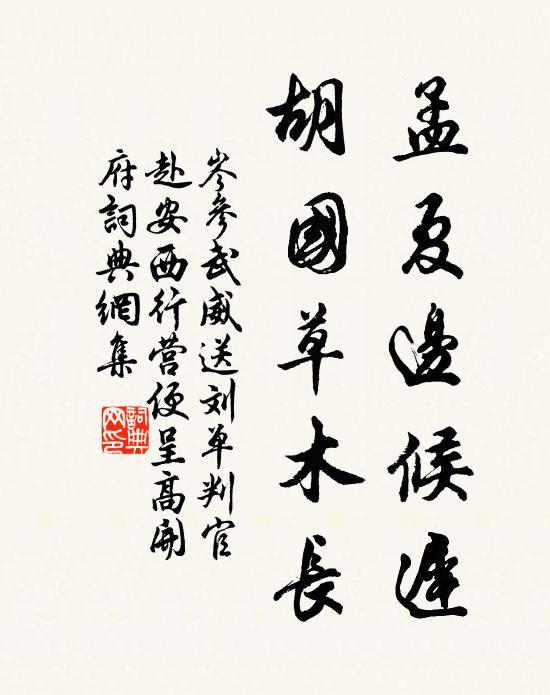 孟夏邊候遲
胡國草木長
岑參武威送刘单判官
赴安西行营便呈高開
府詞典網集
詞典
网印